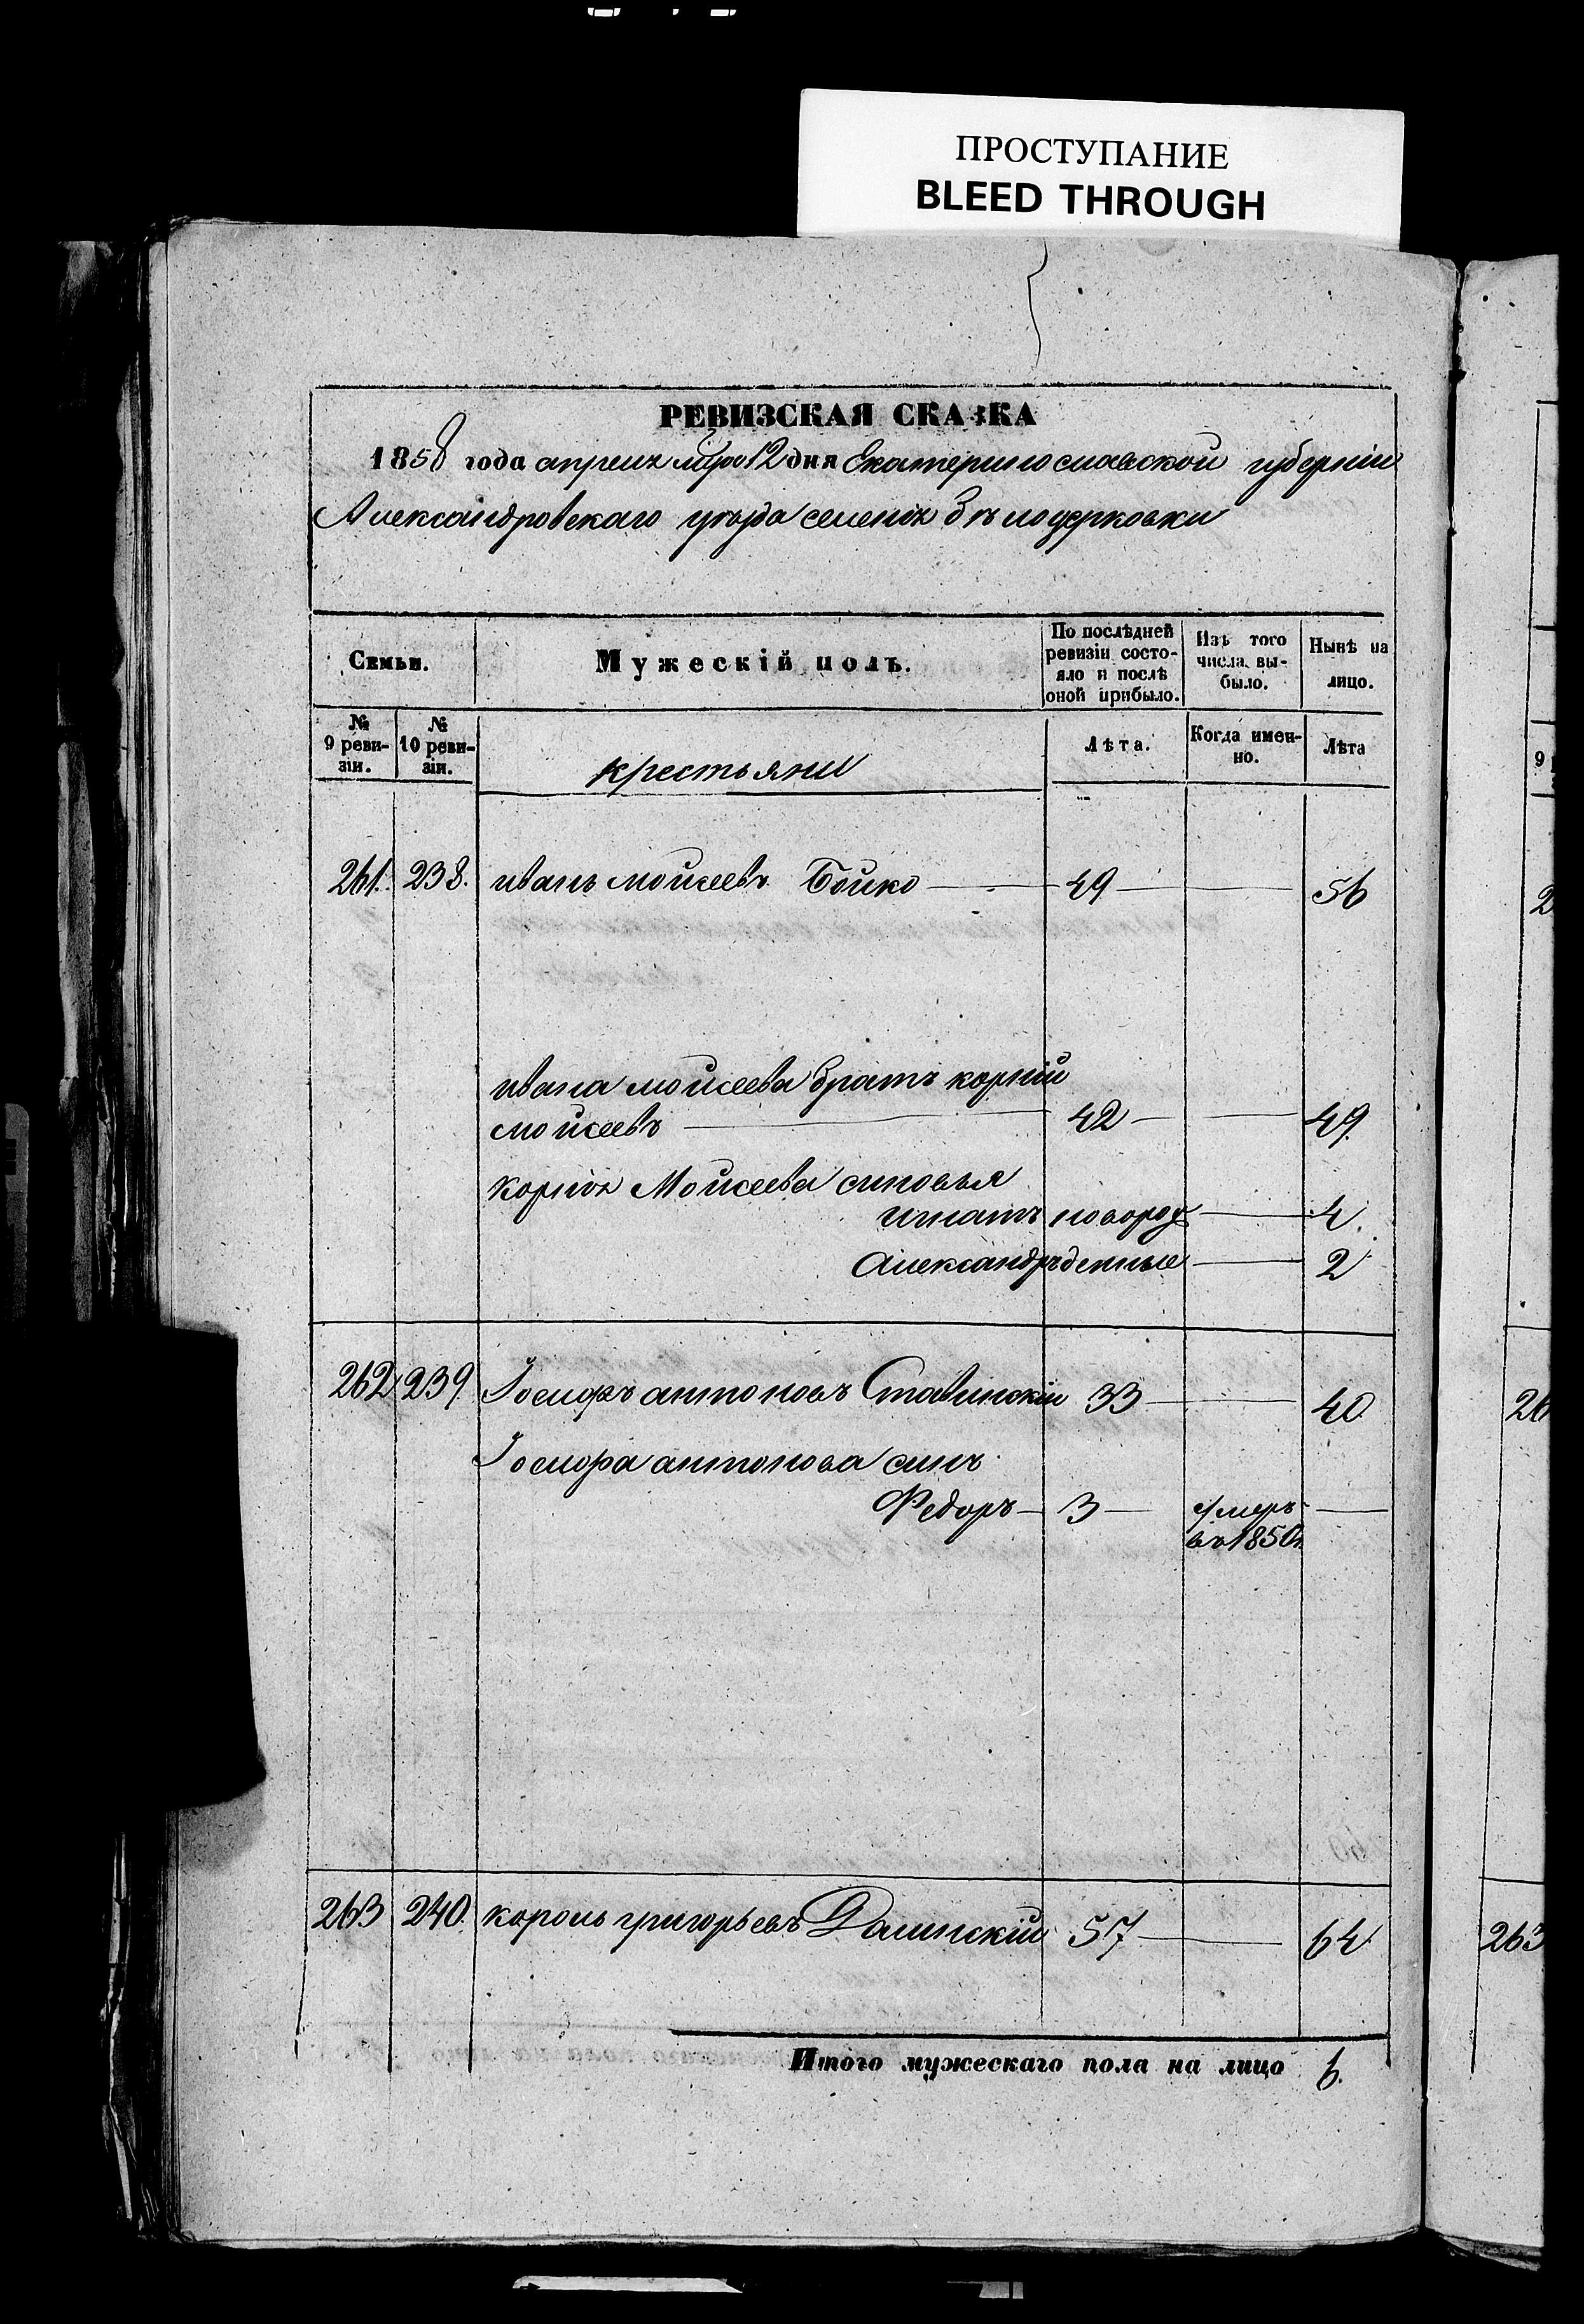 ПРОСТУПАНИЕ
BLEED THROUGH
РЕВИЗСКАЯ СКАЗКА
1858 года апреля мца 12 дня Екатеринославской губерніи
Александровскаго уѣзда селенія Бѣлоцерковки
Семьи.
Мужескій полъ.
По послѣдней ревизіи состояло и послѣ оной прибыло.
Изъ того числа выбыло.
Нынѣ на лицо.
№ 9 ревизіи.
№ 10 ревизіи.
крестьяни
Лѣта.
Когда именно.
Лѣта
261. 238. иванъ моисеевъ Бойко 49 56
ивана моисеева братъ корній
моисеевъ 42 49.
корнія Моисеева синовья
игнатъ новорож 4.
Александръ денные 2
262 239 Іосифъ антоновъ Ставинскій 33 40
Іосифа антонова синъ
Федоръ 3 умеръ
въ 1850г.
263 240. король григорьевъ Долинскій 57 64
Итого мужескаго пола на лицо 6.
9
2
26
263